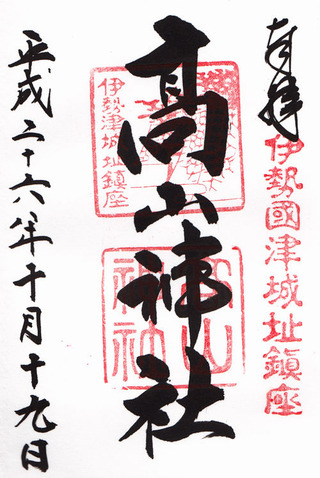 奉拝
伊勢國津城址鎮座
髙山神社
伊勢津城址鎮座
高山神社
平成二十六年十月十九日